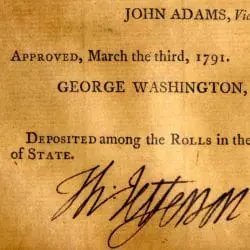 JOHN ADAMS, Vic
APPROVED, March the third, 1791.
GEORGE WASHINGTON,
DEPOSITED among the ROLLS in the
of STATE.
Th. Jefferson